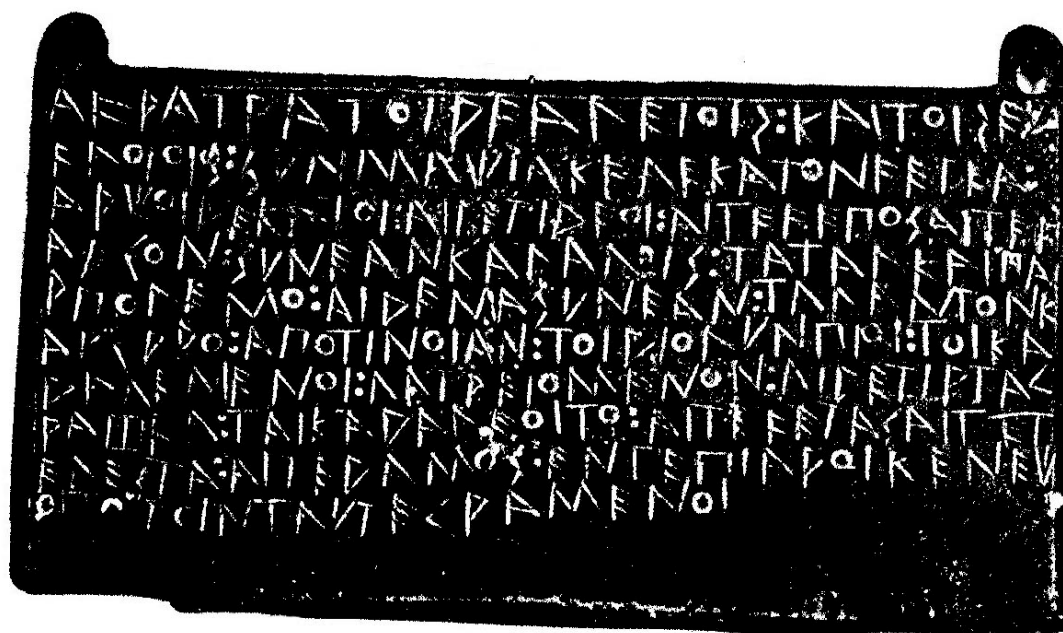 ΑϜΡΑΤΡΑΤΟΙΡϜΑΛΕΙΟΙΣ:ΚΑΙΤΟΙΣΕΥ
ϜΑΟΙΟΙΣ:ΣΥΝΜΑΧΙΑΚΕΑΕΚΑΤΟΝϜΕΤΕΑ:
ΑΡΧΟΙΔΕΚΑΤΟΙ:ΑΙΔΕΤΙΔΕΟΙ:ΑΙΤΕϜΕΠΟΣΑΙΤΕϜ
ΑΡΓΟΝ:ΣΥΝΕΑΝΚΑΛΑΛΟΙΣ:ΤΑΤΑΛΚΑΙΠΑ
ΡΠΟΛΕΜΟ:ΑΙΔΕΜΑΣΥΝΕΑΝ:ΤΑΛΑΝΤΟΝΚ
ΑΡΓΥΡΟ:ΑΠΟΤΙΝΟΙΑΝ:ΤΟΙΔΙΟΛΥΝΠΙΟΙ:ΤΟΙΚΑ
ΔΑΛΕΜΕΝΟΙ:ΛΑΤΡΕΙΟΜΕΝΟΝ:ΑΙΔΕΤΙΡΤΑΓ
ΡΑΦΕΑ:ΤΑΙΚΑΔΑΛΕΟΙΤΟ:ΑΙΤΕϜΕΤΑΣΑΙΤΕΤ
ΕΛΕΣΤΑ:ΑΙΤΕΔΑΜΟΣ:ΕΝΤΕΠΙΑΡΟΙΚΕΝΕΧ
ΟΙΤΟΤΟΙΝΤΑΥΤΕΓΡΑΜΕΝΟΙ